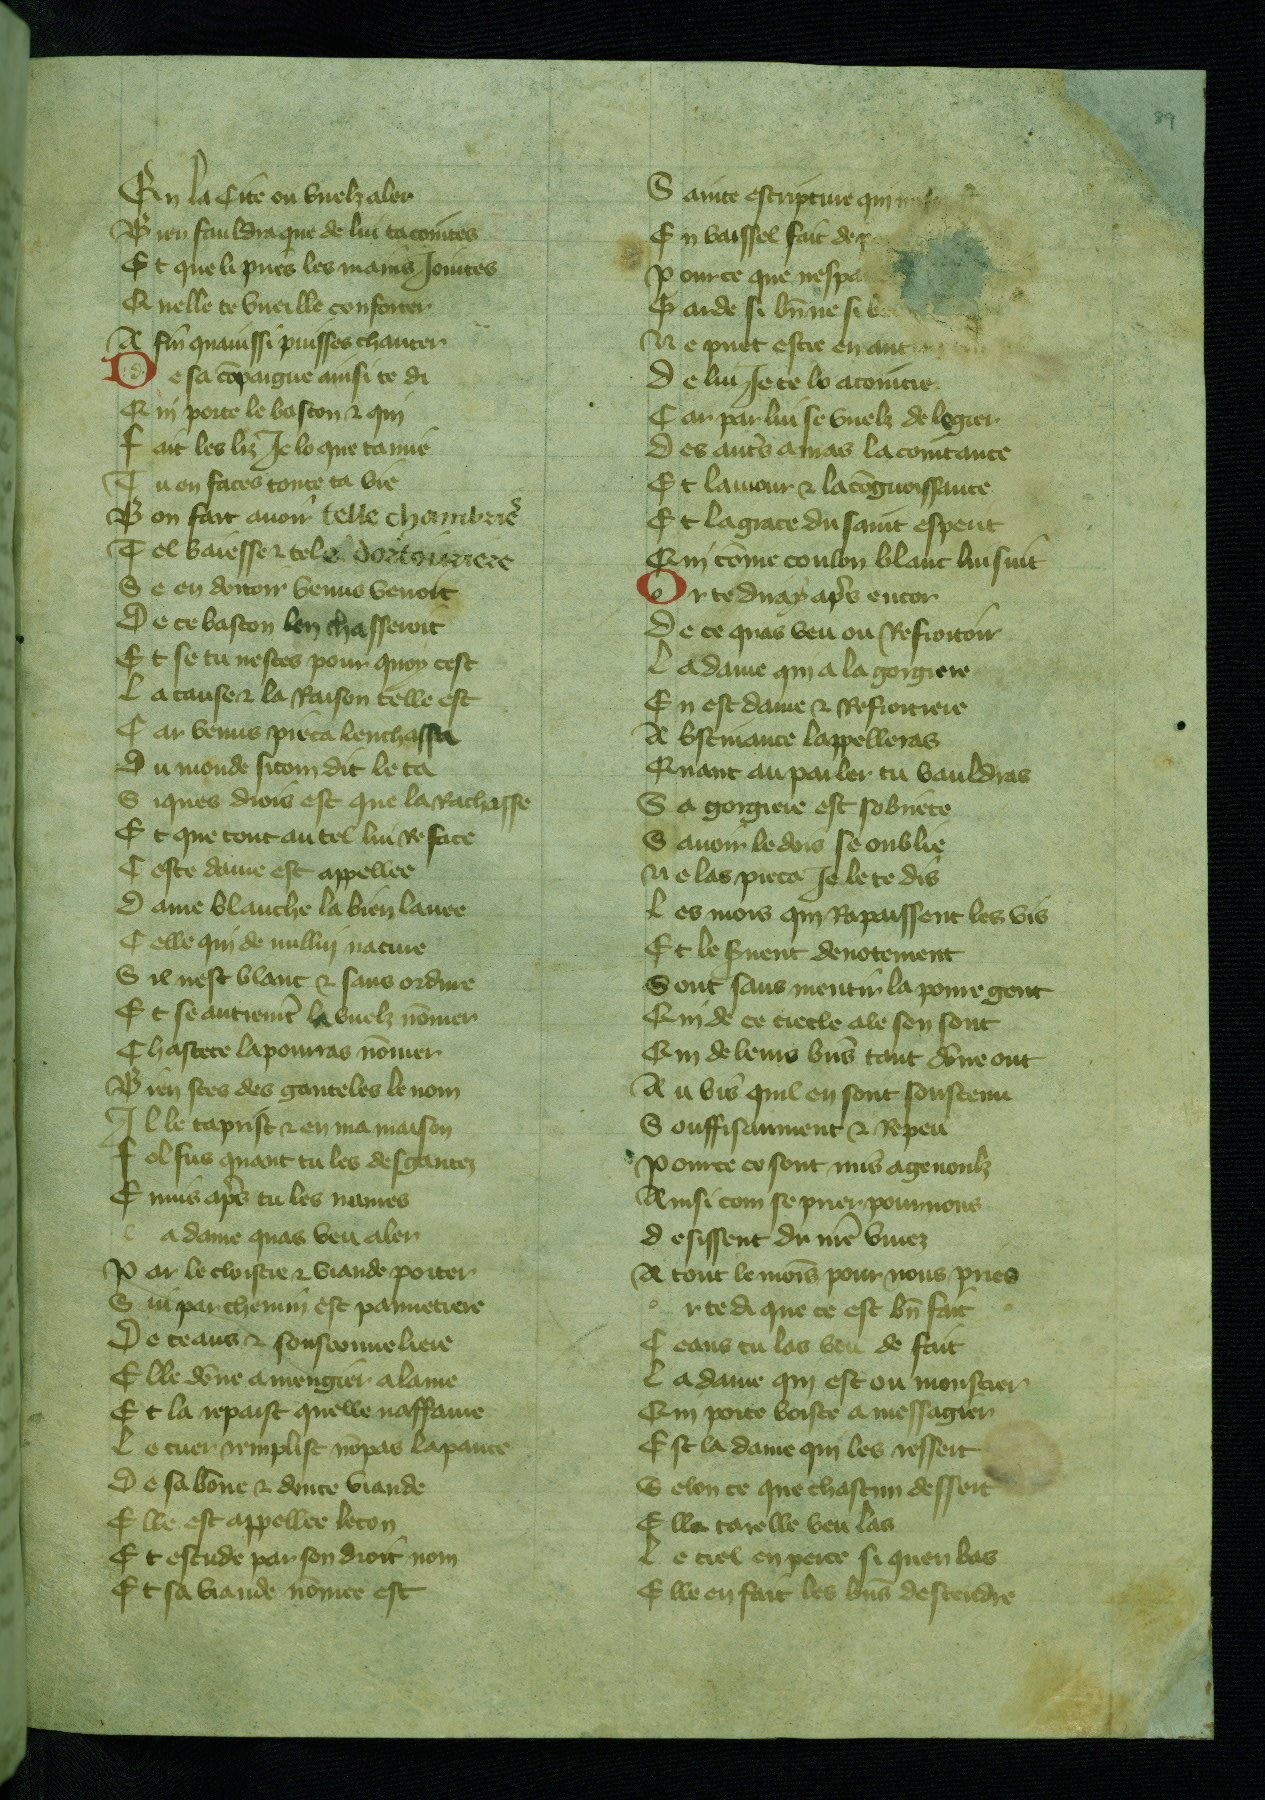 89
En la Cite ou vuelz aler
Bien fauldra que de lui tacointes
Et que li pries les mains Jointes
Quelle te vueille conforter
A fin quauissi puisses chanter
De sa cōpaigne ainsi te di
Qui porte le baston ⁊ qui
fait les liz Je lo que tamie
Tu en faces toute ta vie
Bon fait auoir telle chambriere
Tel baiesse ⁊ tele dortouriere
Se en dortoir venus venoit
De ce baston len chasseroit
Et se tu nestes pour quoy cest
La cause ⁊ la Raison telle est
Car venus pieca lenchassa
Du monde sicom dit le ta
Siques drois est que la Rachasse
Et que tout au tel lui Reface
Ceste dame est appellee
Dame blanche la bien lauee
Celle qui de nullui nacure
Sil nest blanc ⁊ sans ordure
Et se autremt la vuelz nōmer
Chastete la pourras nōmer
Bien sces des ganteles le nom
Il le taprist ⁊ en ma maison
fol fus quant tu les desgantez
Enuis aps tu les names
la dame quas veu aler
Par le cloistre ⁊ viande porter
Sui parchemin est pannetiere
De ceans ⁊ souscouueliere
Elle dōne a mengier a lame
Et la repaist quelle naffame
Le cuer remplist nōpas la pance
De sa bōne ⁊ douce viande
Elle est appellee lecon
Et estude par son droit nom
Et sa viande nōmee est
Sainte escripture qui
En vaissel fait de
Pource que nespa
Garde si bn̄ ne si
Ne puet estre en aut
De lui Je te lo acointie
Car par lui se vuelz de legier
Des auts auras lacointance
Et lamour ⁊ lacōgnoissance
Et la grace du saint esperit
Qui cōme coulon blanc lui suit
Or te diray aps encor
De ce quas veu ou Refroitoir
La dame qui a la gorgiere
En est dame ⁊ Refroitriere
Abstinance lappelleras
Quant au parler tu vauldras
Sa gorgiere est sobriete
Sauoir le dois se oublie
Ne las pieca Je le te dis
Les mors qui Rapaissent les vis
Et le suent deuotement
Sont sans mentir la poure gent
Qui de ce ciecle ale sen sont
Qui de leurs bns tant dōne ont
Au vis quil en sont soustenu
Souffisanment ⁊ Repeu
Pource ce sont mis agenoulz
Ainsi com se prier pour nous
desissent du mē viuez
A tout le mois pour nous pries
or te di que ce est bn̄ fait
Ceans tu las veu de fait
La dame qui est ou moustier
Qui porte boiste a messagier
Est la dame qui les ressert
Selon ce que chascun dessert
Ella tarelle veu las
Le ciel en perce si quen bas
Elle en fait les bns descendre